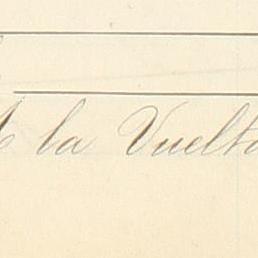 A la Vuelta